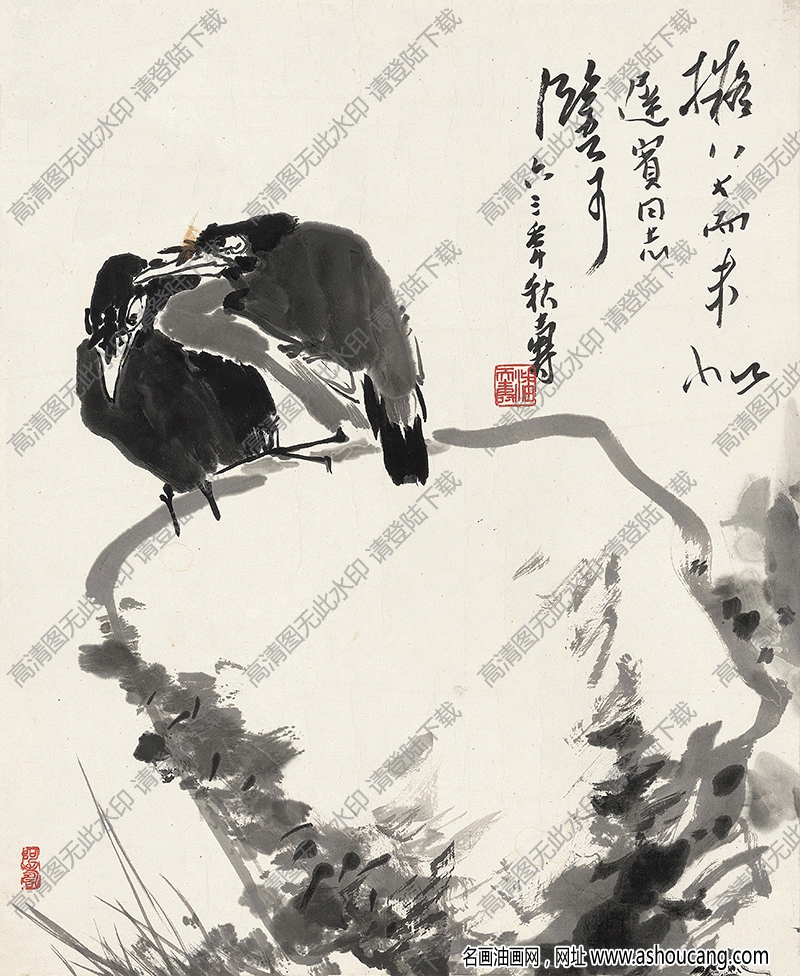 擬八大而未似
达賓同志
鑒可
六三年秋壽
潘天壽
阿壽
高清图无此水印 请登陆下载
名画油画网，网址 www.ashoucang.com